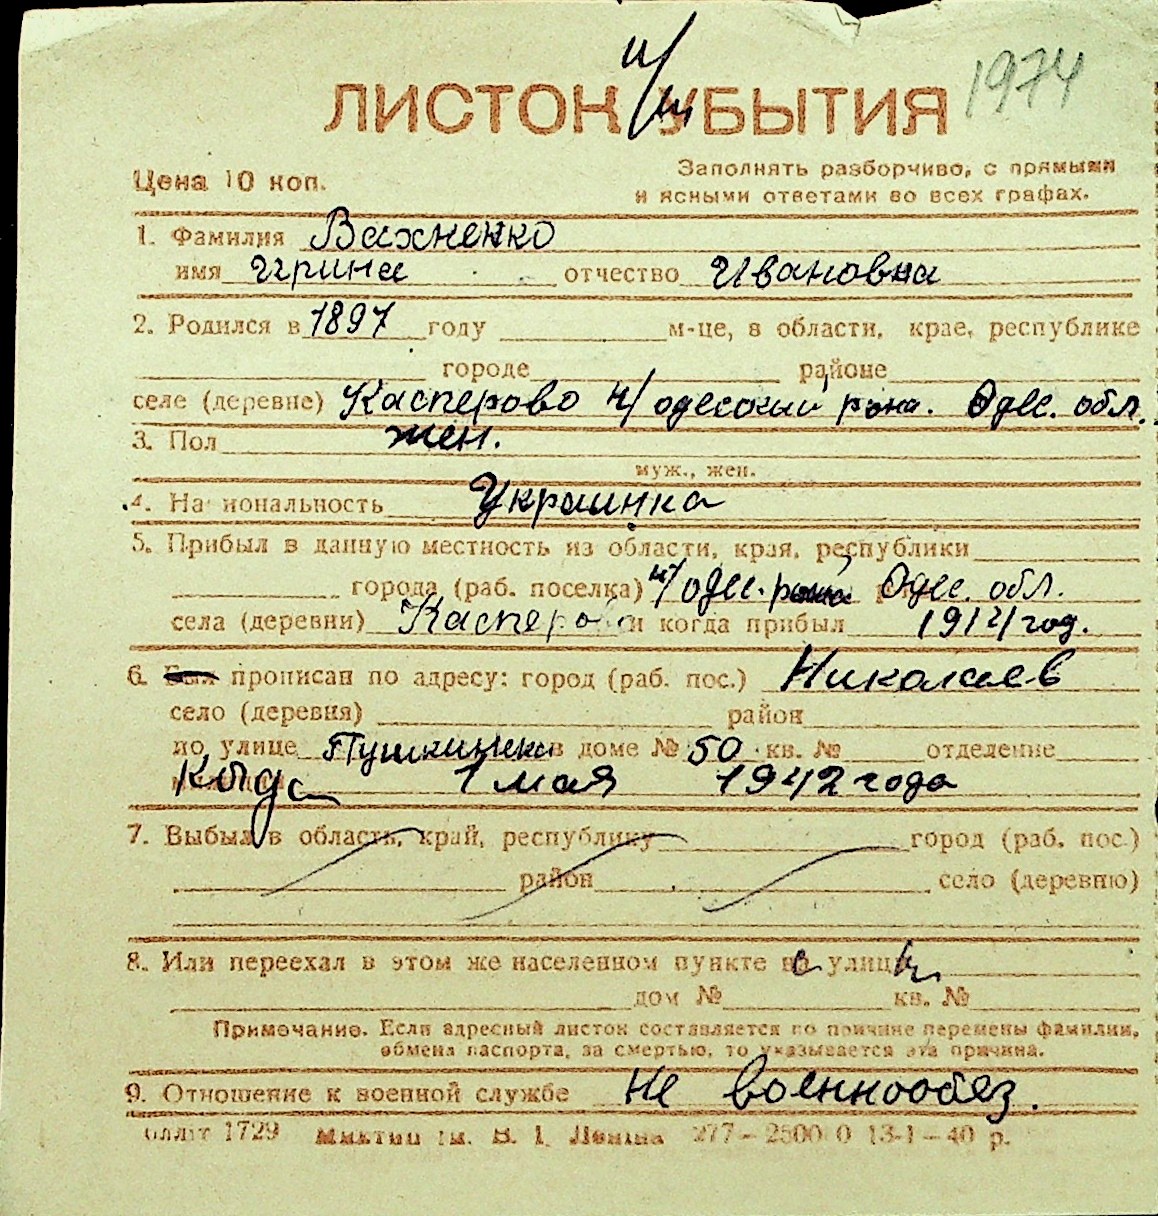 и/
ЛИСТОК УБЫТИЯ 1974
Цена 10 коп.
Заполнять разборчиво, с прямыми
и ясными ответами во всех графах.
1. Фамилия Вахненко
имя Ирина отчество Ивановна
2. Родился в 1897 году м-це, в области, крае, республике
городе районе
селе (деревне) Касперово н/одесский р-на. Одес. обл.
3. Пол жен.
муж., жен.
4. Национальность Украинка
5. Прибыл в данную местность из области, края, республики
города (раб. поселка) н/одес. р-на Одес. обл.
села (деревни) Касперово и когда прибыл 1914 год.
6. Был прописан по адресу: город (раб. пос.) Николаев
село (деревня) район
по улице Пушкинска в доме № 50 кв. № отделение
Когда 1 мая 1942 года
7. Выбыл в область, край, республику город (раб. пос.)
район село (деревню)
8. Или переехал в этом же населенном пункте с улицы
дом № кв. №
Примечание. Если адресный листок составляется по причине перемены фамилии,
обмена паспорта, за смертью, то указывается эта причина.
9. Отношение к военной службе не военнообяз.
1729 им. В. І. Леніна 277—2500 0 13-1—40 р.